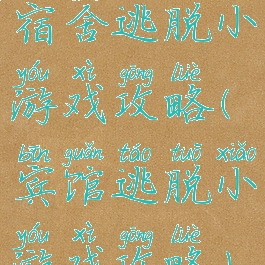 宿舍逃脱小
yóu xì gōng lüè
游戏攻略(
bīn guǎn táo tuō xiǎo
宾馆逃脱小
yóu xì gōng lüè
游戏攻略)